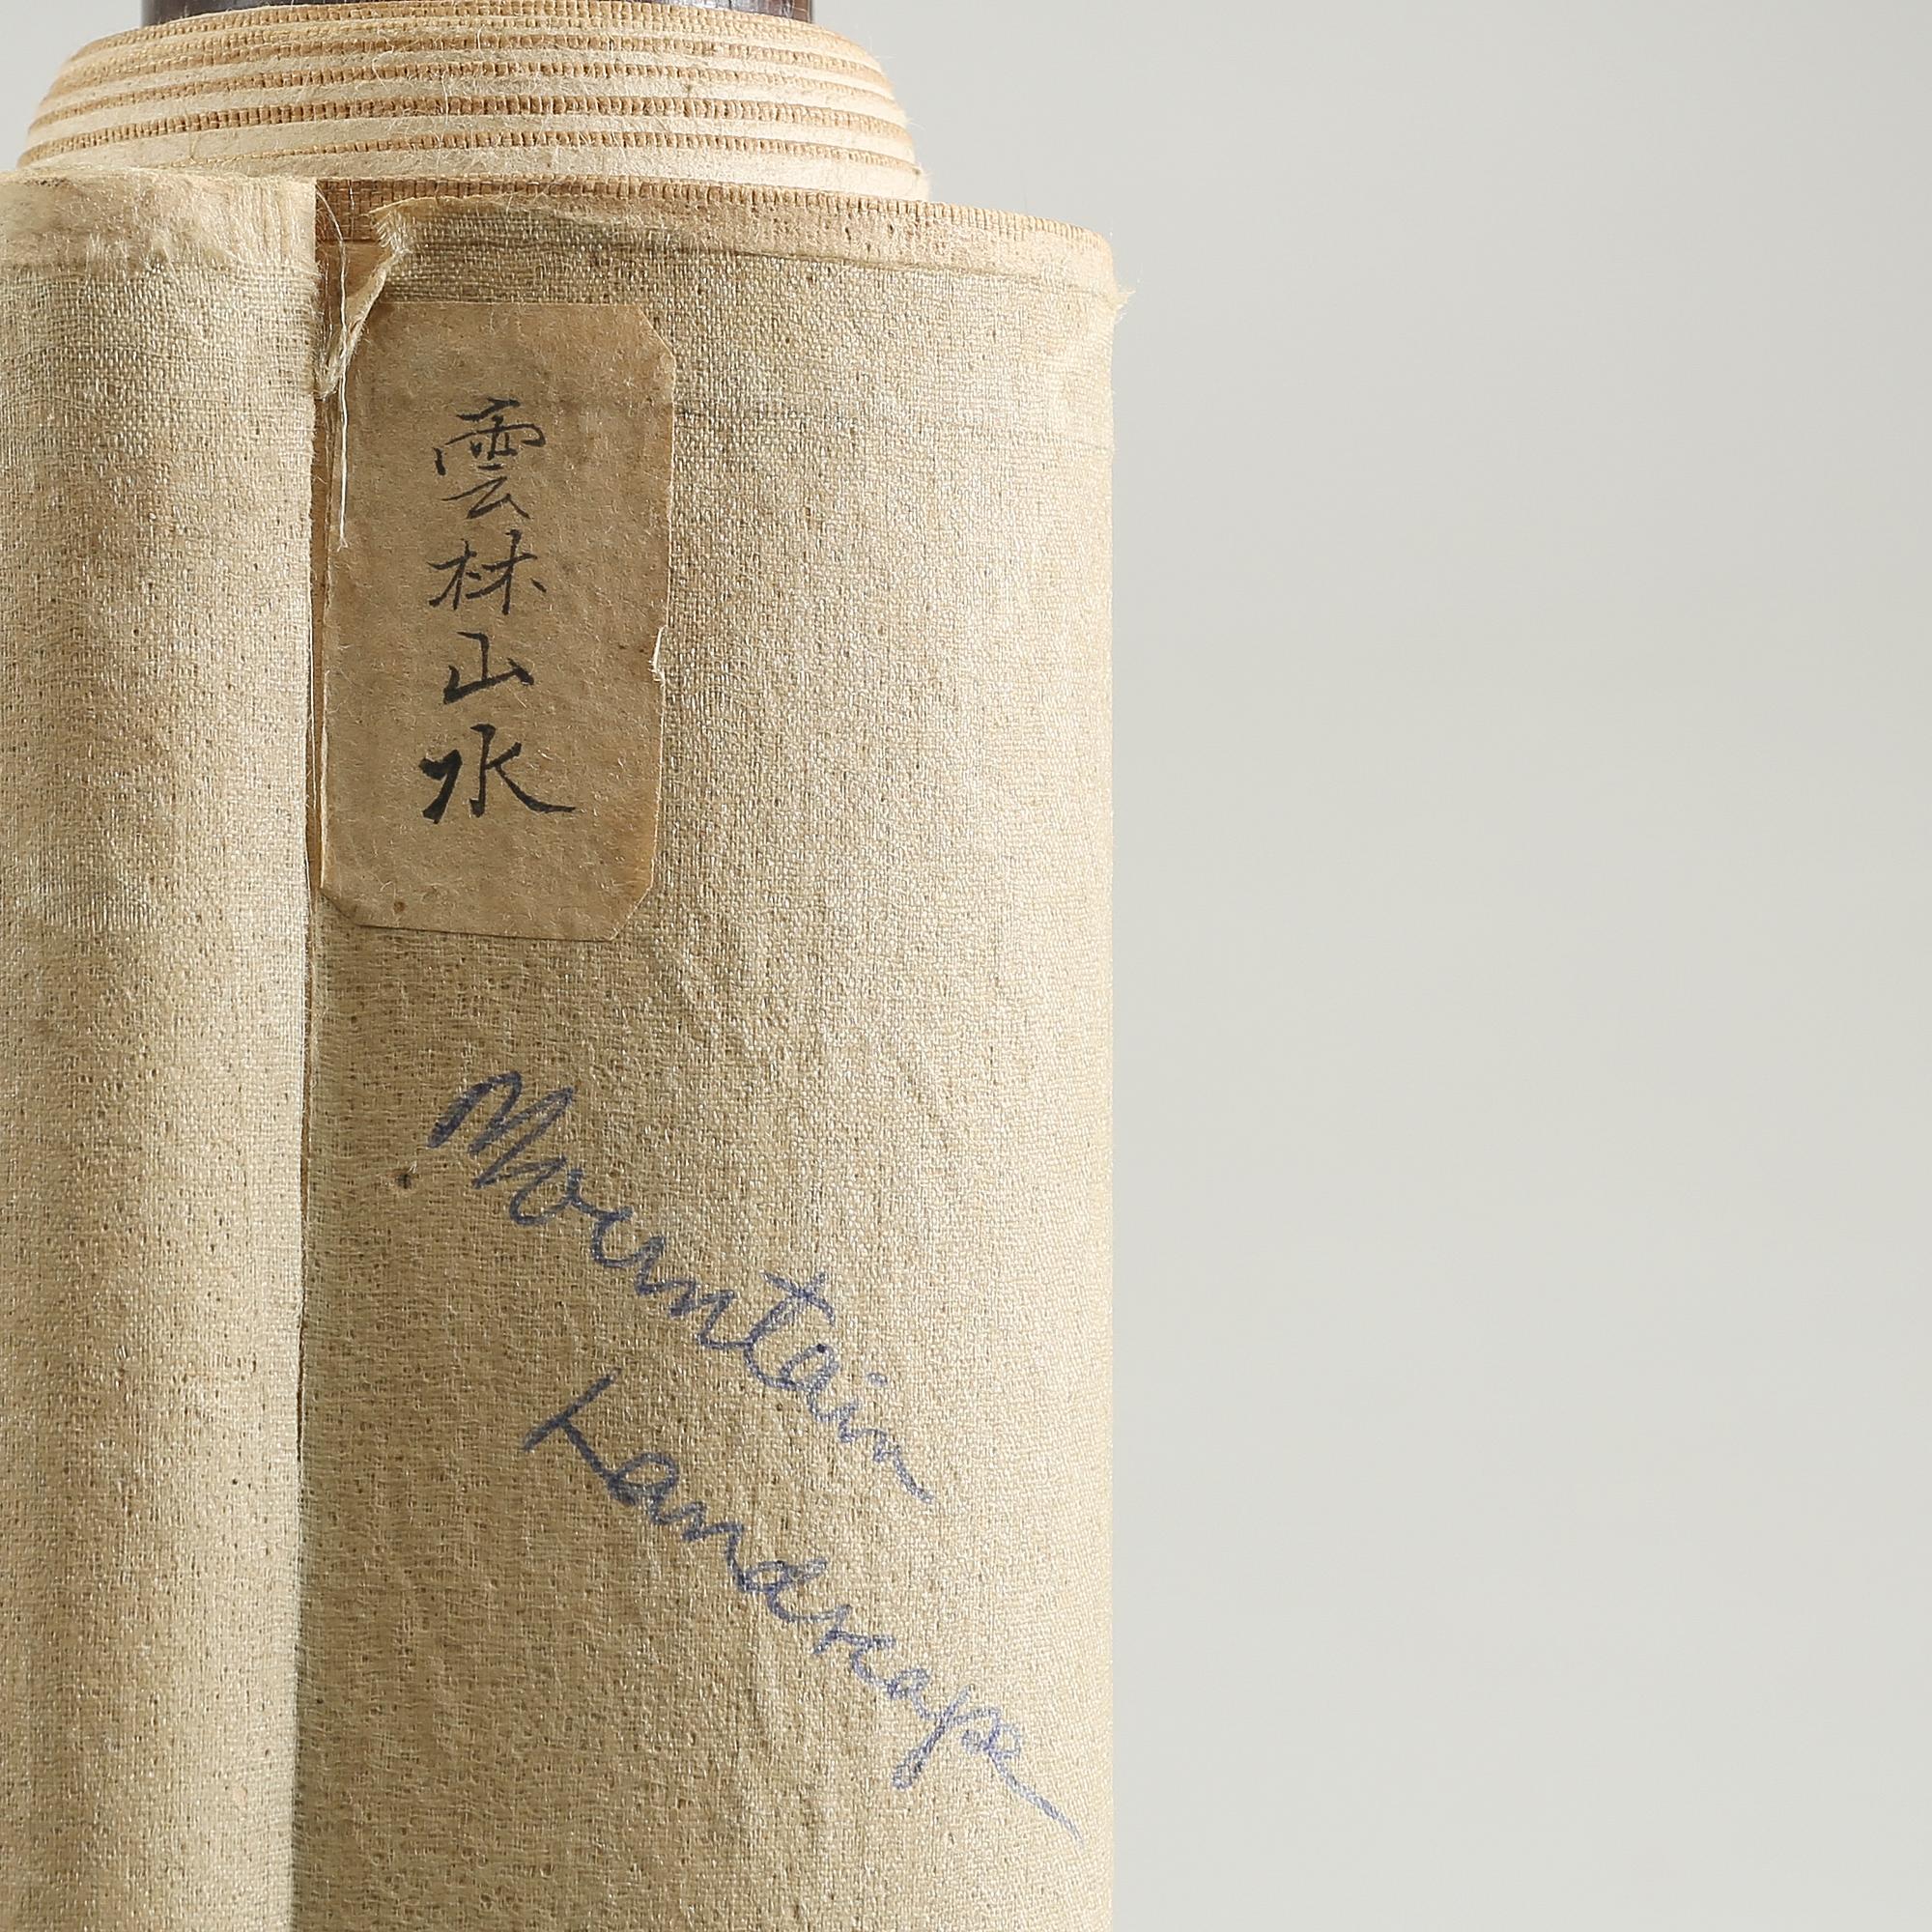 雲林山水
Mountain
Landscape